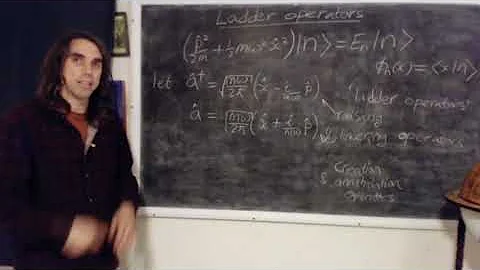 Ladder operators
(p̂²/2m + ½mω²x̂²)|n⟩ = Eₙ|n⟩
ϕₙ(x) = ⟨x|n⟩
let â† = √(mω/2ħ) (x̂ - i/mω p̂)
â = √(mω/2ħ) (x̂ + i/mω p̂)
'ladder operators'
raising
& lowering operators
Creation
& annihilation
operators